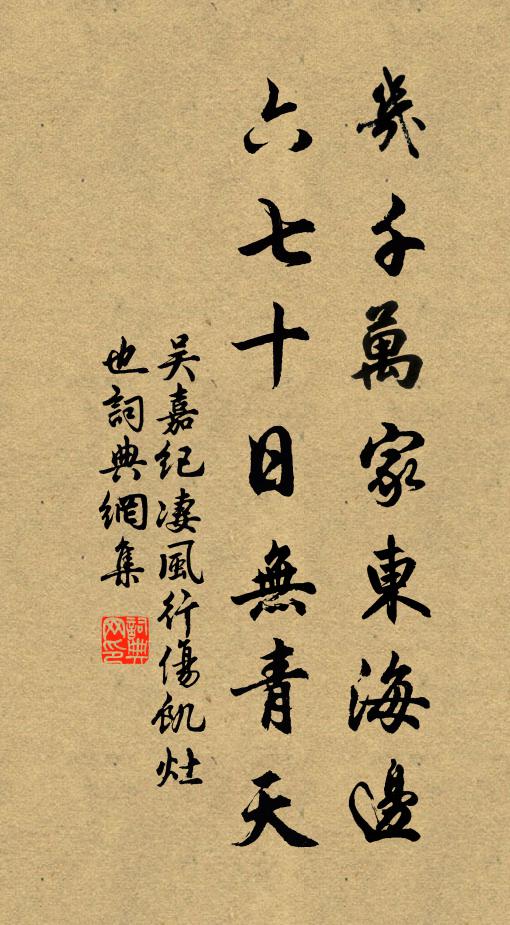 幾千萬家東海邊
六七十日無青天
吳嘉紀淒風行傷飢灶
也詞典網集
詞典网印